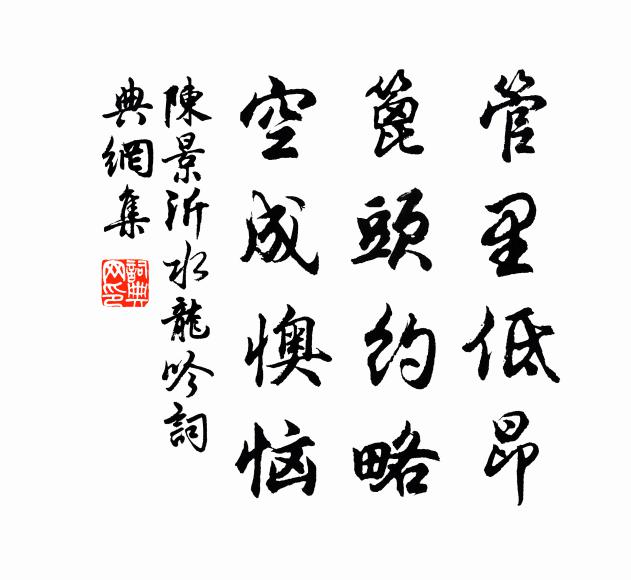 管里低昂
篦頭約略
空成懊恼
陳景沂水龍吟詞
典網集
詞典網印